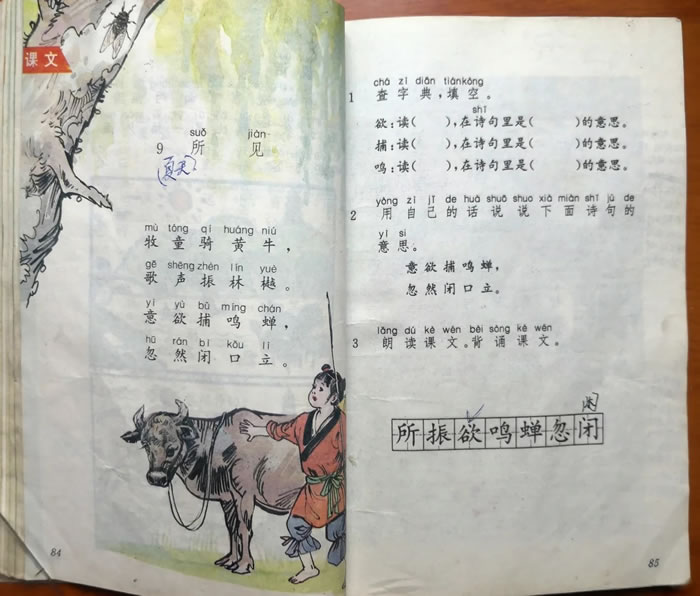 课文
suǒ jiàn
9 所 见
(夏天)
mù tóng qí huáng niú
牧童骑黄牛，
gē shēng zhèn lín yuè
歌声振林樾。
yì yù bǔ míng chán
意欲捕鸣蝉，
hū rán bì kǒu lì
忽然闭口立。
84
chá zì diǎn tiánkòng
1 查字典，填空。
shī
欲：读( )，在诗句里是( )的意思。
捕：读( )，在诗句里是( )的意思。
鸣：读( )，在诗句里是( )的意思。
yòng zì jǐ de huà shuō shuo xià miàn shī jù de
2 用自己的话说说下面诗句的
yì si
意思。
意欲捕鸣蝉，
忽然闭口立。
lǎng dú kè wén bèi sòng kè wén
3 朗读课文。背诵课文。
所振欲鸣蝉忽闭
85